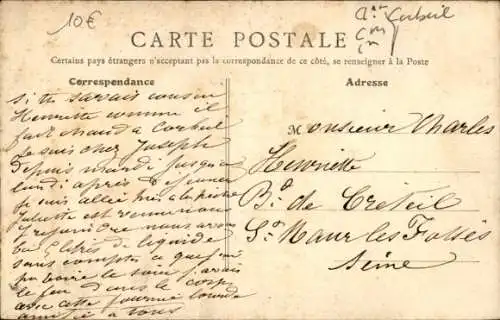 10€
Corbeil
CARTE POSTALE
Certains pays étrangers n'acceptant pas la correspondance de ce côté, se renseigner à la Poste
Correspondance
Adresse
si tu savais cousin
Henriette comme il
fait chaud a Corbeil
je suis chez Joseph
depuis mardi jusqu'a
lundi après déjeuner
je suis allée hier a la pêche
Juliette est venue nous
rejoindre nous avons
bu 6 litres de liquide
sans compter ce que
boire le soir j'avais
le feu dans le corps
avec cette journée lourde
amitié a tous
Monsieur Charles
Henriette
Bd de Créteil
St Maur les Fossés
Seine